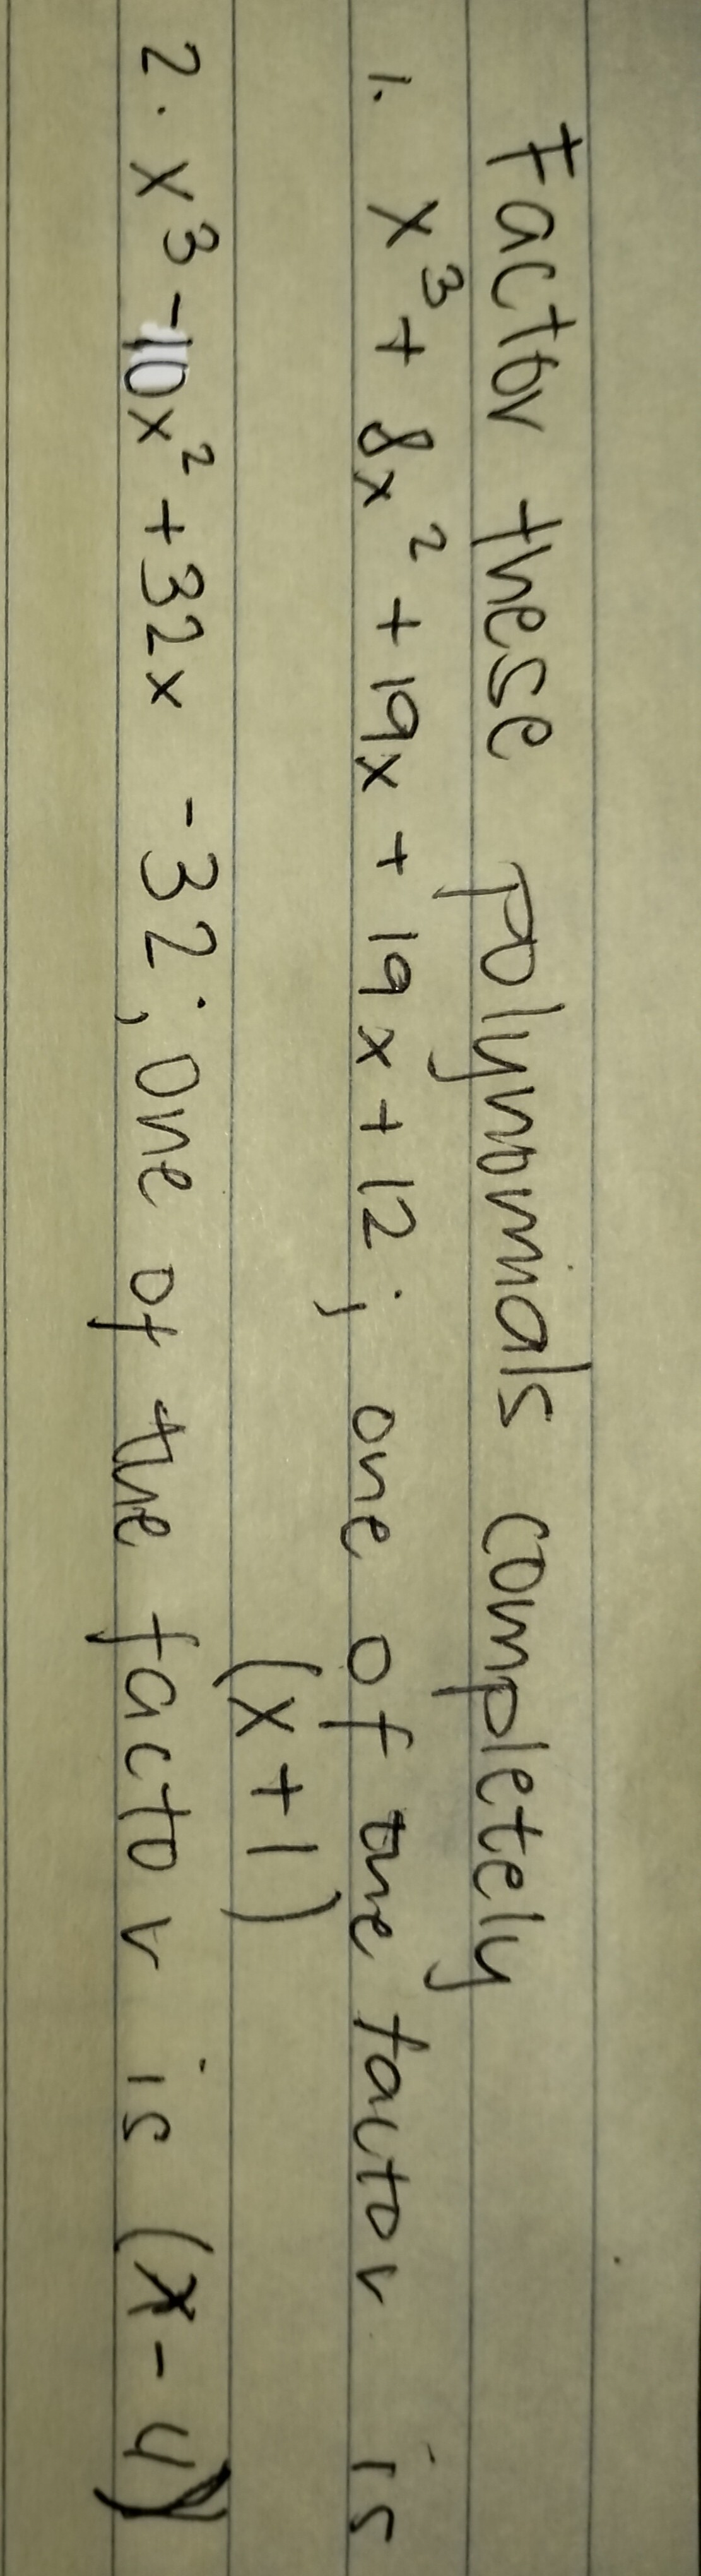 Factor these polynomials completely
1. x³ + 8x² + 19x + 19x + 12; one of the factor is
(x + 1)
2. x³ - 10x² + 32x - 32; one of the factor is (x - 4)